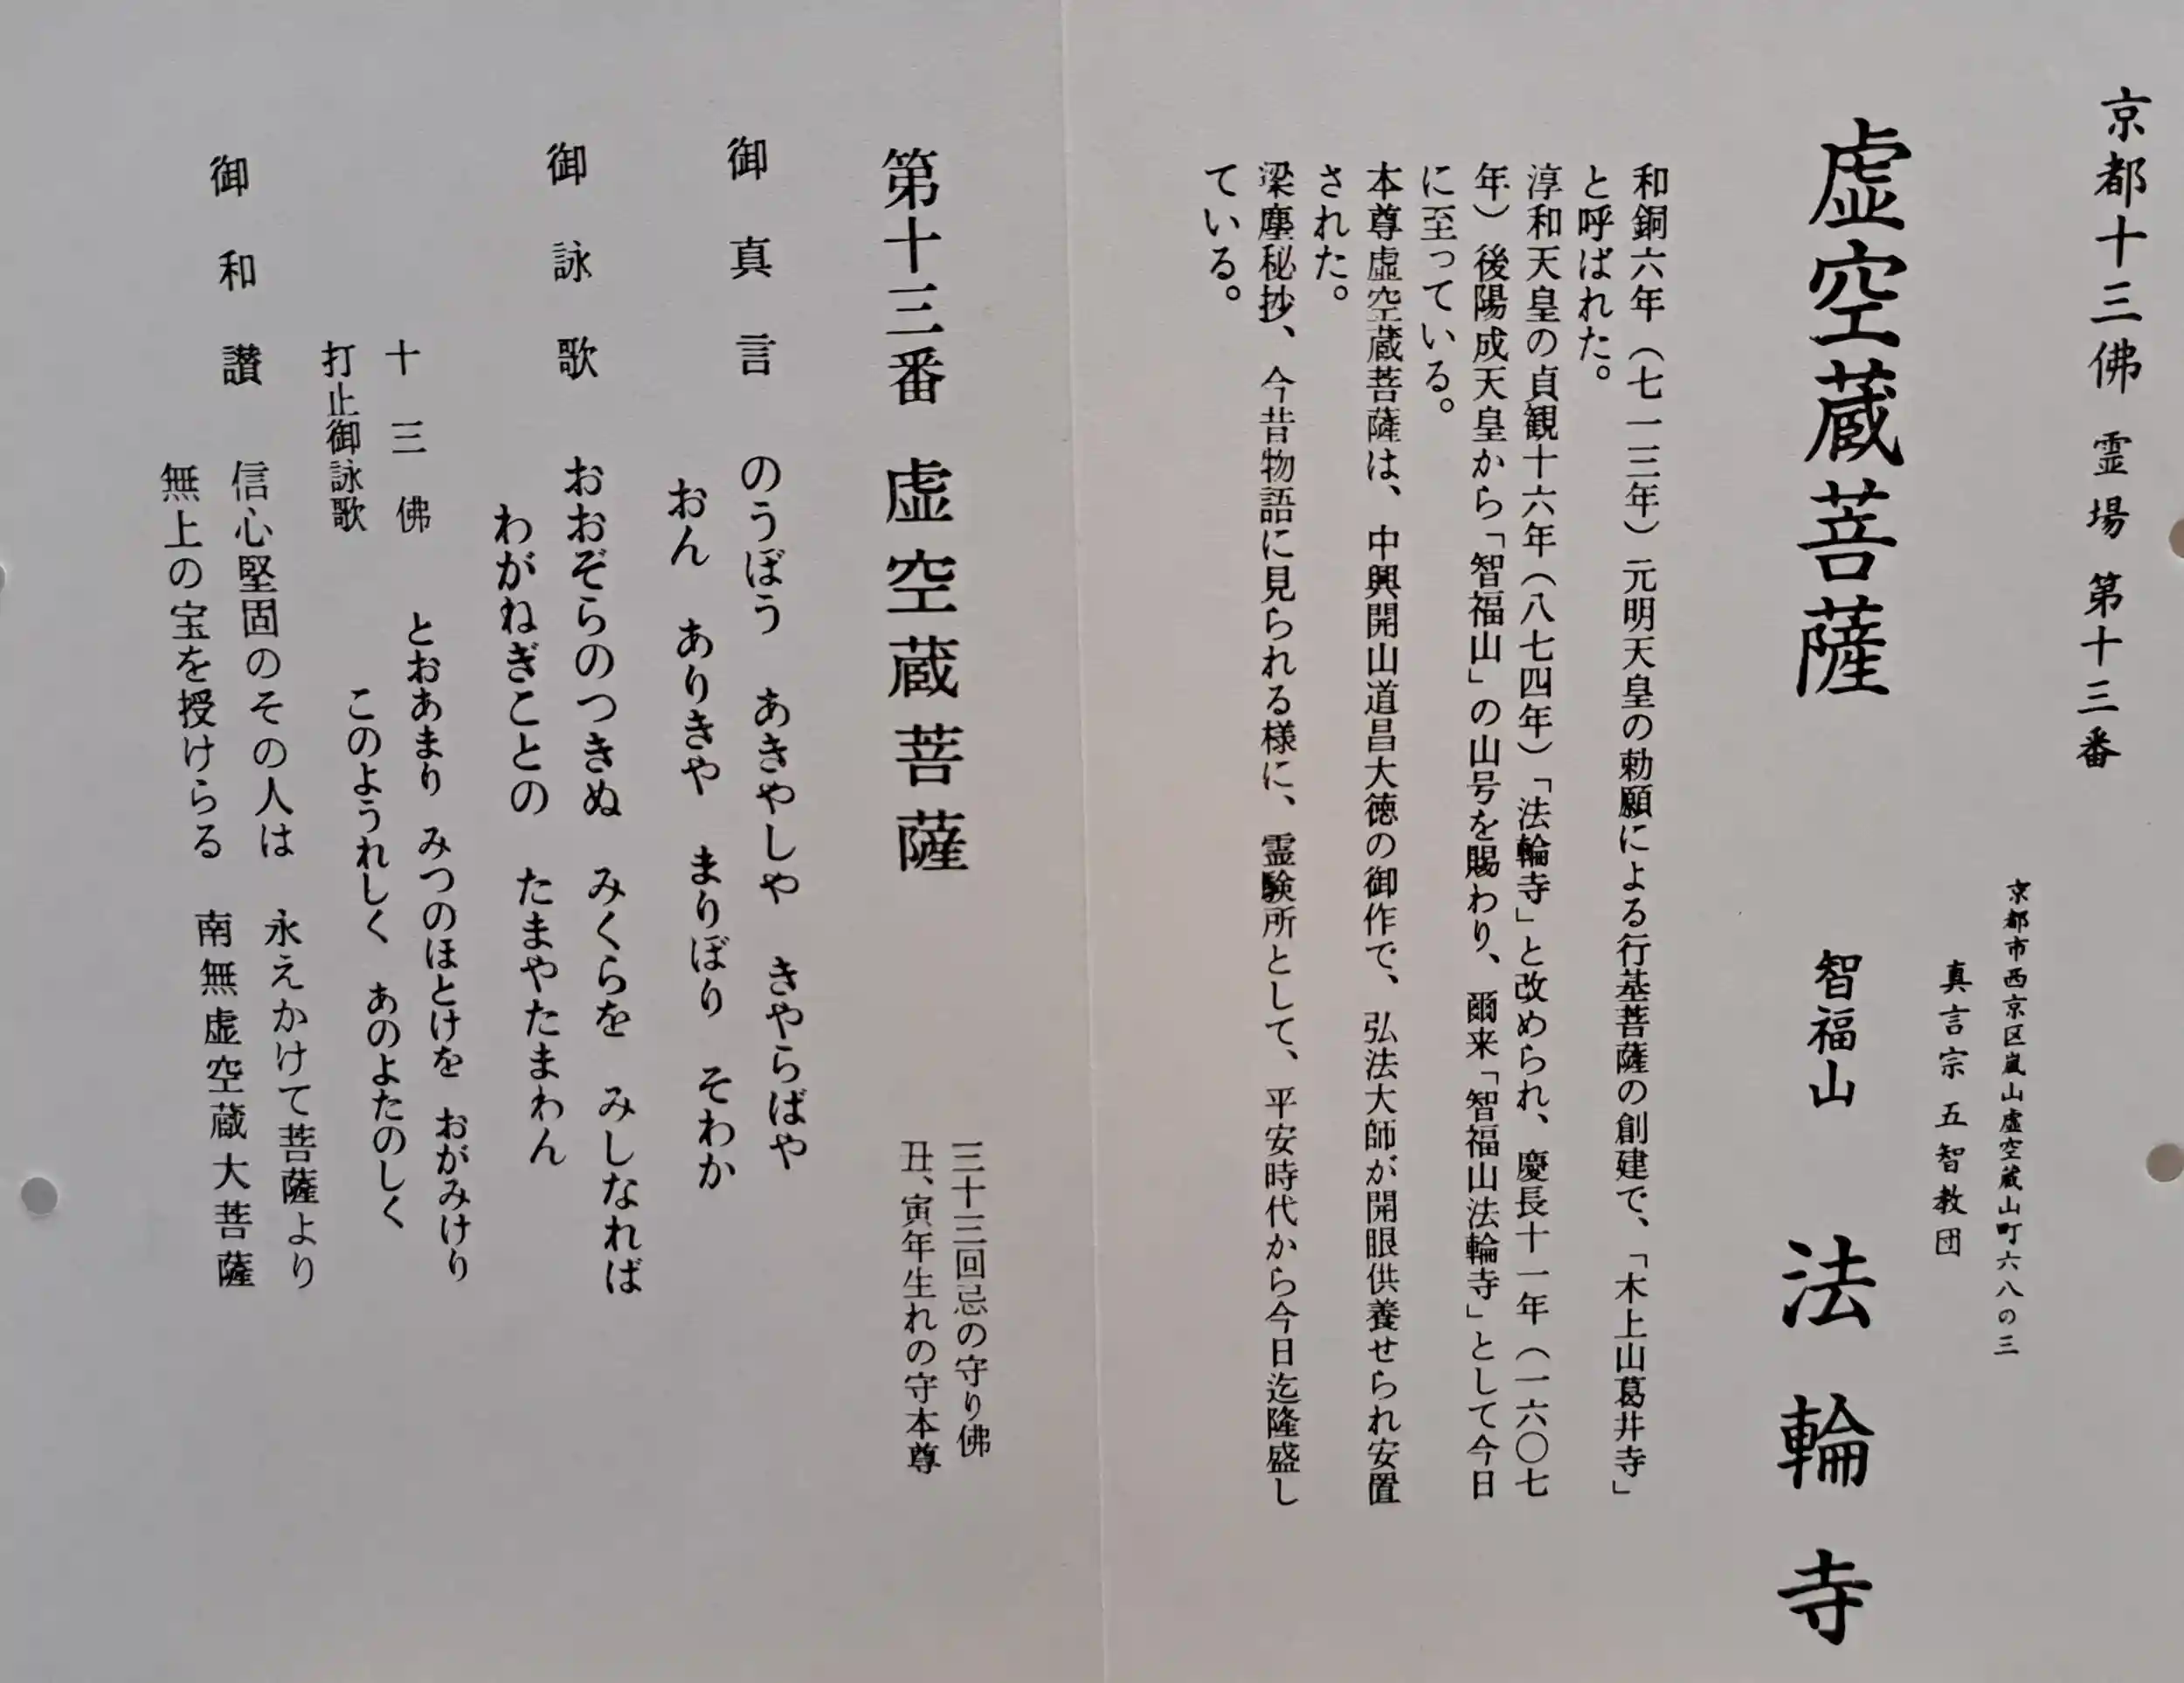 京都十三佛 霊場 第十三番
京都市西京区嵐山虚空蔵山町六八の三
真言宗 五智教団
虚空蔵菩薩 智福山 法輪寺
和銅六年（七一三年）元明天皇の勅願による行基菩薩の創建で、「木上山葛井寺」
と呼ばれた。
淳和天皇の貞観十六年（八七四年）「法輪寺」と改められ、慶長十一年（一六〇七
年）後陽成天皇から「智福山」の山号を賜わり、爾来「智福山法輪寺」として今日
に至っている。
本尊虚空蔵菩薩は、中興開山道昌大徳の御作で、弘法大師が開眼供養せられ安置
された。
梁塵秘抄、今昔物語に見られる様に、霊験所として、平安時代から今日迄隆盛し
ている。
三十三回忌の守り佛
丑、寅年生れの守本尊
第十三番 虚空蔵菩薩
御真言 のうぼう あきやしや きやらばや
おん ありきや まりぼり そわか
御詠歌 おおぞらのつきぬ みくらを みしなれば
わがねぎことの たまやたまわん
十三佛 とおあまり みつのほとけを おがみけり
打止御詠歌 このようれしく あのよたのしく
御和讃 信心堅固のその人は 永えかけて菩薩より
無上の宝を授けらる 南無虚空蔵大菩薩